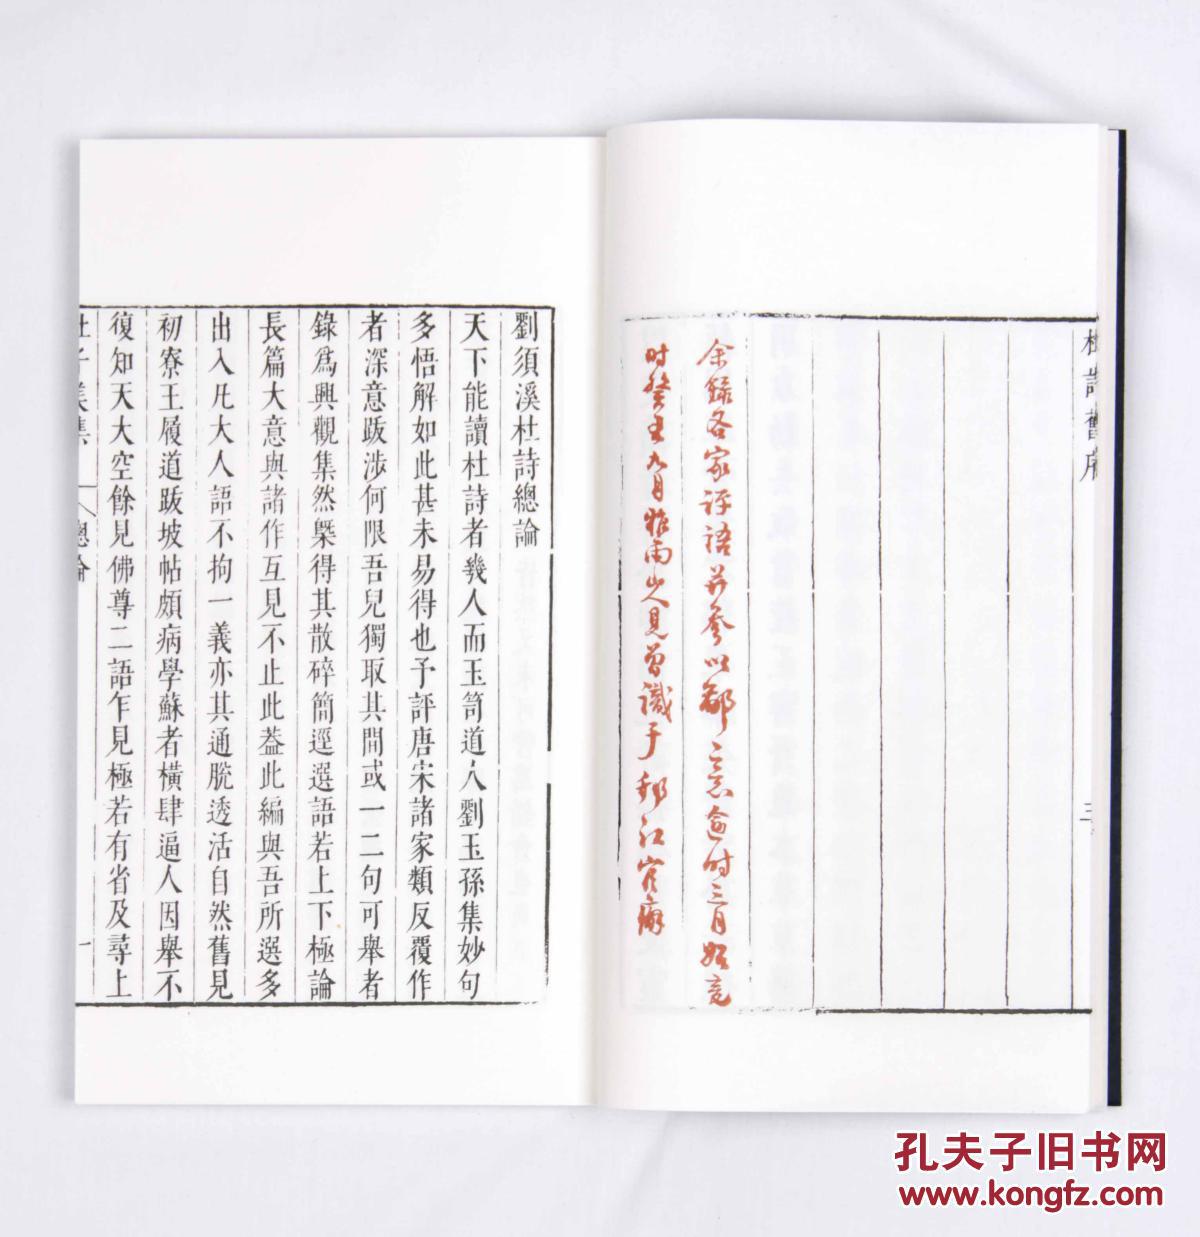 杜詩舊序
三
余錄各家評語并參以鄙意逾时三月始竟
时癸丑九月雅雨山人見曾識于邗江官廨
劉須溪杜詩總論
天下能讀杜詩者幾人而玉笥道人劉玉孫集妙句
多悟解如此甚未易得也予評唐宋諸家類反覆作
者深意跋涉何限吾兒獨取其間或一二句可舉者
錄爲興觀集然槩得其散碎簡逕選語若上下極論
長篇大意與諸作互見不止此葢此編與吾所選多
出入凡大人語不拘一義亦其通脫透活自然舊見
初寮王履道跋坡帖頗病學蘇者橫肆逼人因舉不
復知天大空餘見佛尊二語乍見極若有省及尋上
杜子美集
總論
一
孔夫子旧书网
www.kongfz.com